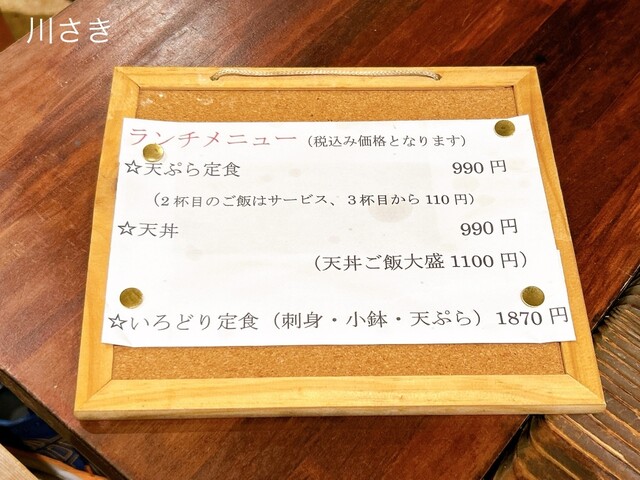 川さき
ランチメニュー（税込み価格となります）
☆天ぷら定食 990 円
（2 杯目のご飯はサービス、３杯目から 110 円）
☆天丼 990 円
（天丼ご飯大盛 1100 円）
☆いろどり定食（刺身・小鉢・天ぷら）1870 円